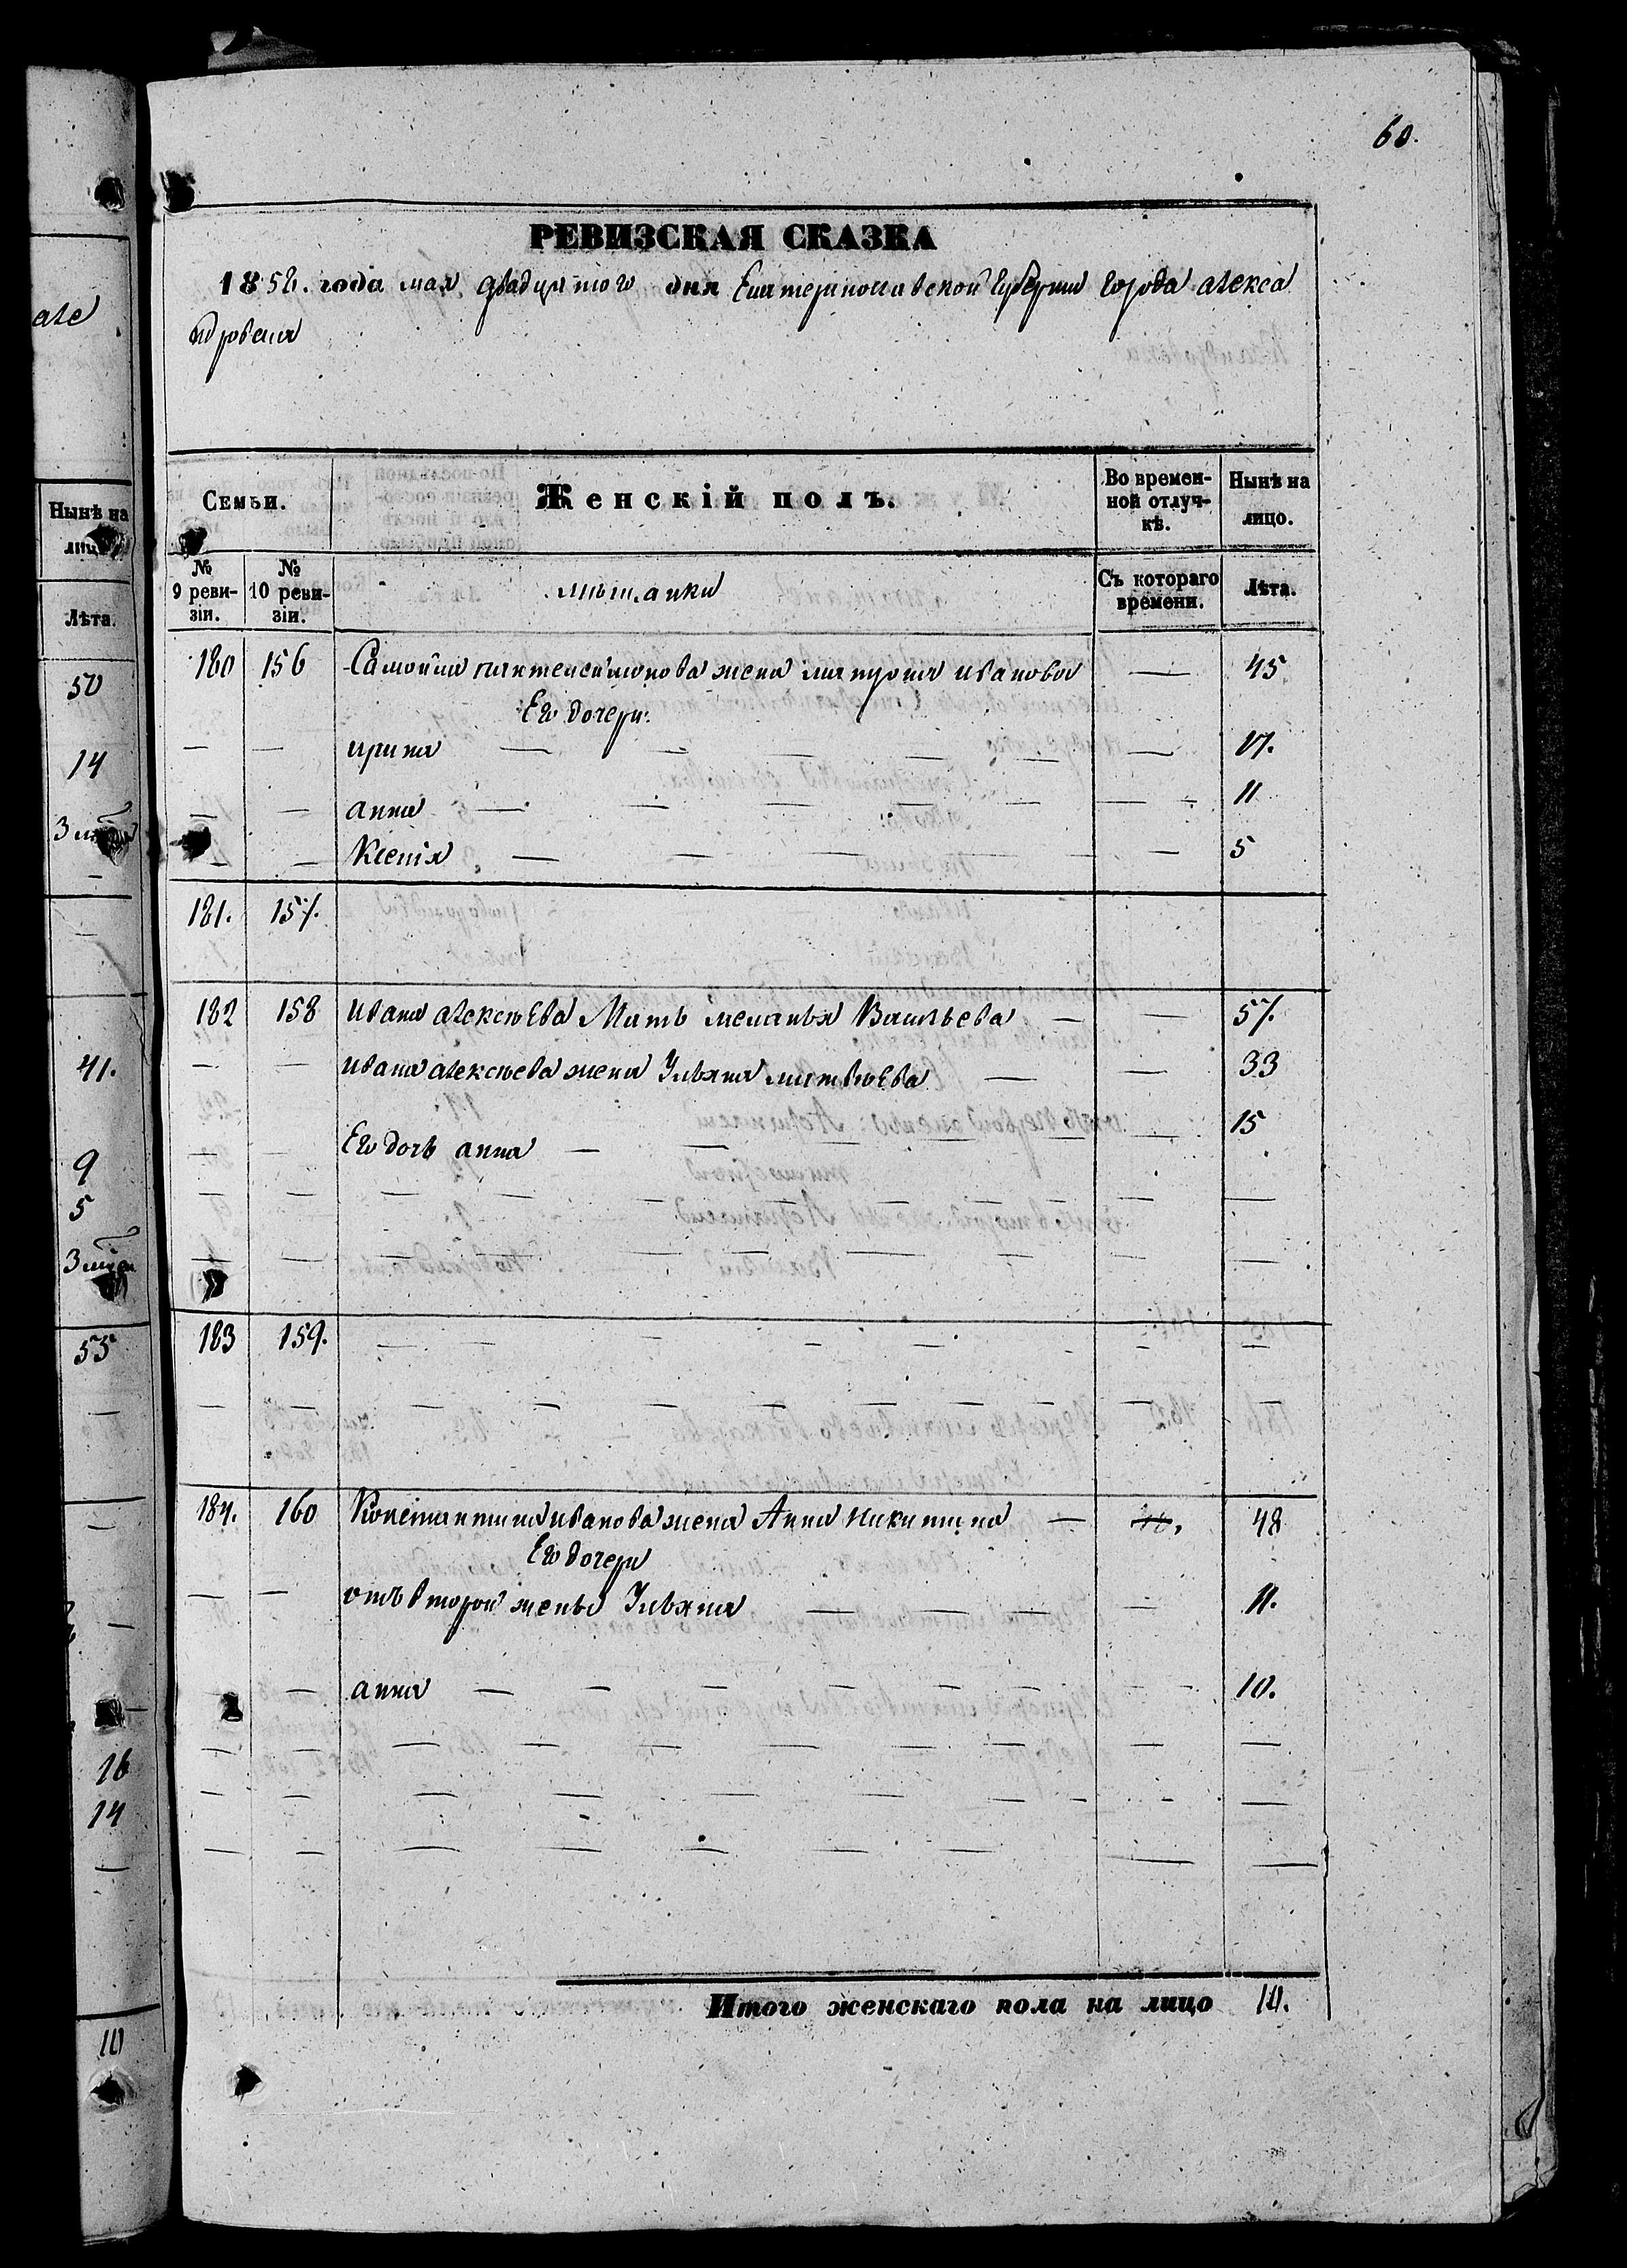 60.
РЕВИЗСКАЯ СКАЗКА
1858. года мая двадцятого дня Екатеринославской Губернии Города алекса
ндровска
Семьи.
Женскій полъ.
Во времен-
ной отлуч-
кѣ.
Нынѣ на
лицо.
№
9 реви-
зіи.
№
10 реви-
зіи.
мѣщанки
Съ котораго
времени.
Лѣта.
180 156 Самойла жена иванова — 45
Его дочери:
— — ирина — — — — — — 17.
— — анна — — — — — — 11
— — Ксенія — — — — — — 5
181. 157.
182 158 ивана алексѣева Мать меланья Васильева — — 57.
— — ивана алексѣева жена Ульяна матвѣева — — 33
— — Его дочь анна — — — — 15
183 159.
184. 160 Константина иванова жена Анна никитина — 48
Его дочери
— — отъ второй жены Ульяна — — — — 11.
— — анна — — — — — — 10.
Итого женскаго пола на лицо 10.
але
Нынѣ на
лицо
Лѣта.
50
14
3
41.
9
5
3
55
16
14
10